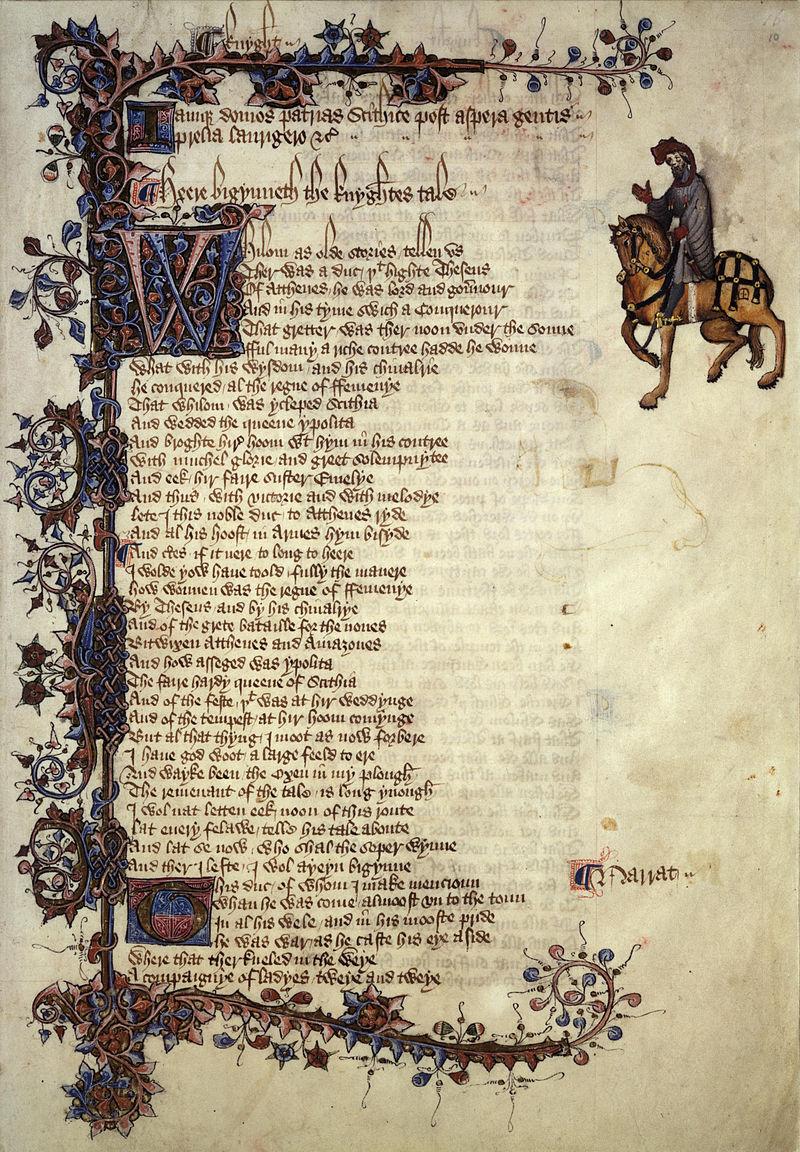 Knyght
Iamque domos patrias Scithice post aspera gentis
prelia laurigero &c
Heere bigynneth the knyghtes tale
Whilom as olde stories tellen vs
Ther was a duc þt highte Theseus
Of Atthenes he was lord and gouernour
And in his tyme swich a Conquerour
That gretter was ther noon vnder the sonne
Fful many a riche contree hadde he wonne
What with his wysdom and his chiualrie
he conquered al the regne of ffemenye
That whilom was ycleped Scithia
And wedded the queene ypolita
And broghte hir hoom wt hym in his contree
With muchel glorie and greet solempnytee
And eek hir faire suster Emelye
And thus with victorie and with melodye
lete I this noble duc to Atthenes ryde
And al his hoost in Armes hym bisyde
And certes if it nere to long to heere
I wolde yow haue toold fully the manere
how wonnen was the regne of ffemenye
By Theseus and by his chiualrye
And of the grete bataille for the nones
Bitwixen Atthenes and Amazones
And how asseged was ypolita
The faire hardy queene of Scithia
And of the feste þt was at hir weddynge
And of the tempest at hir hoom comynge
But al that thyng I moot as now forbere
I haue god woot a large feeld to ere
And wayke been the Oxen in my plough
The remenant of the tale is long ynough
I wol nat letten eek noon of this route
lat euery felawe telle his tale aboute
And lat se now who shal the soper wynne
And ther I lefte I wol ayeyn bigynne
This duc of whom I make mencioun
Whan he was come almoost vn to the toun
In al his wele and in his mooste pride
he was war as he caste his eye aside
Where that ther kneled in the weye
A compaignye of ladyes tweye and tweye
Narrat
10